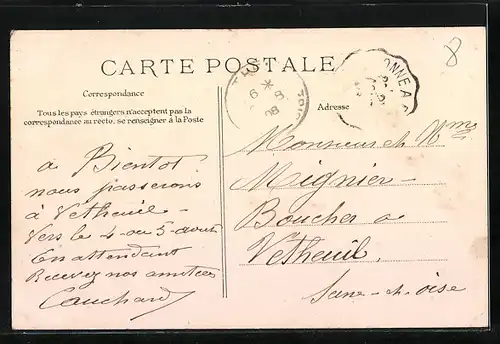 8
CARTE POSTALE
Correspondance
Tous les pays étrangers n'acceptent pas la
correspondance au recto. se renseigner à la Poste
à Bientot
nous passerons
à Vetheuil -
Vers le 4 ou 5 aout
En attendant
Recevez nos amitiés
Cauchard
Adresse
Monsieur et Mme
Mignier -
Boucher a
Vetheuil
Seine-et-oise
6
08
ONNE A